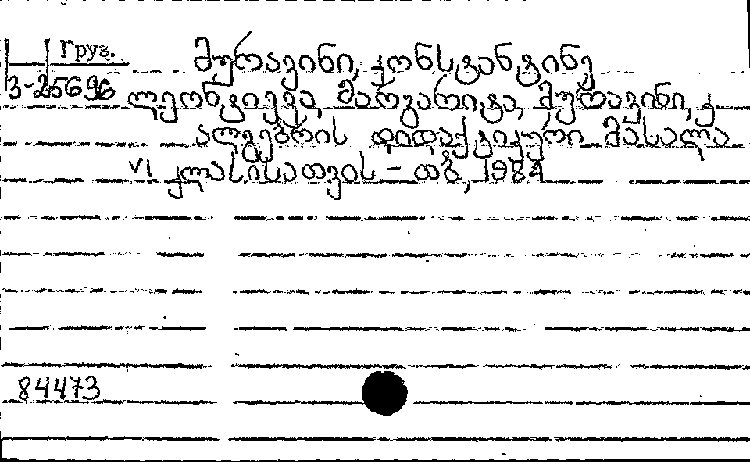 Груз.
მურავინი, კონსტანტინე
3-25696 ლეონტიევა, მარგარიტა, მურავინი, კ
ალგებრის დიდაქტიკური მასალა
VI კლასისათვის - თბ, 1984
84473